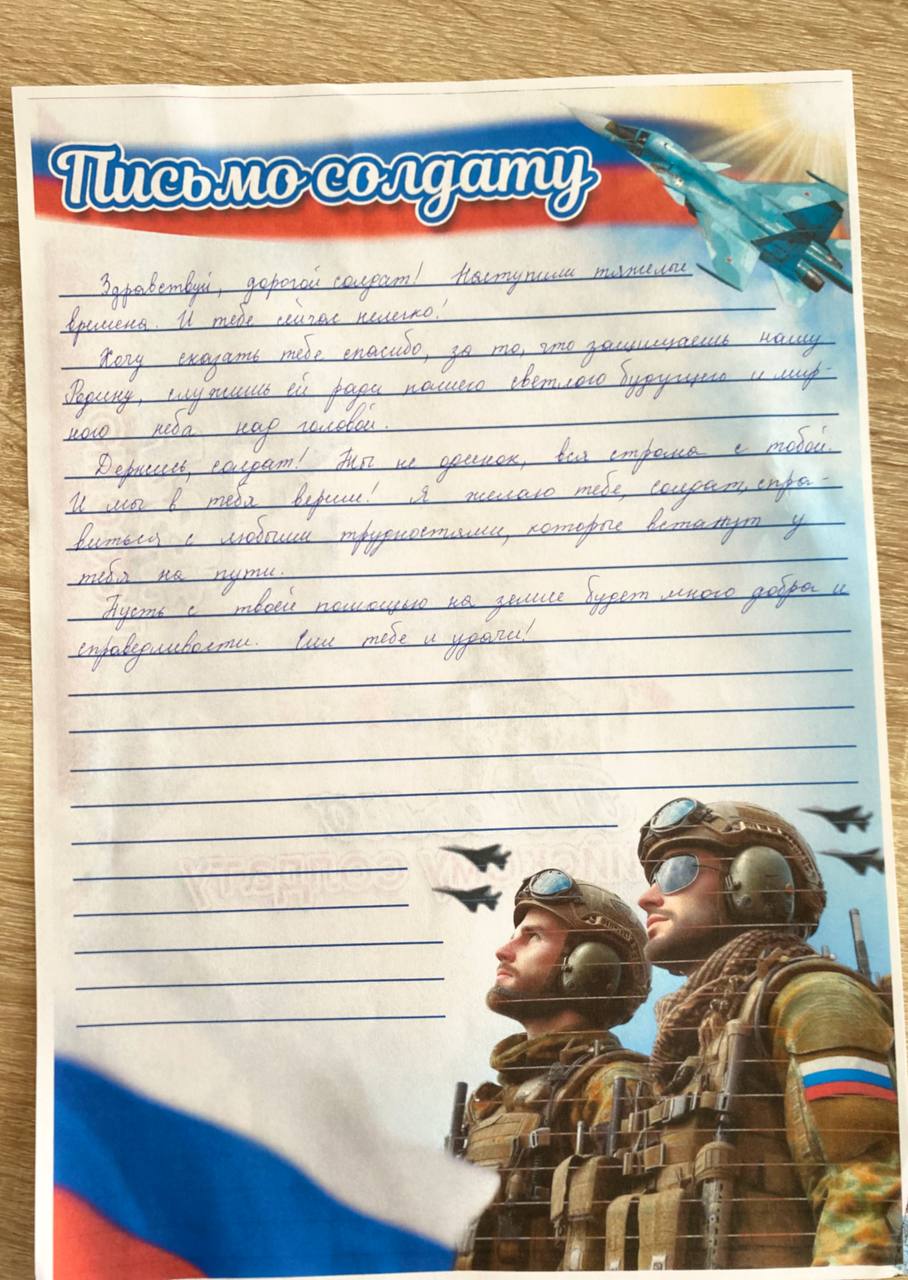 Письмо солдату
Здравствуй, дорогой солдат! Наступили тяжелые
времена. И тебе сейчас нелегко!
Хочу сказать тебе спасибо, за то, что защищаешь нашу
Родину, служишь ей ради нашего светлого будущего и мир-
ного неба над головой.
Держись, солдат! Ты не одинок, вся страна с тобой.
И мы в тебя верим! Я желаю тебе, солдат, спра-
виться с любыми трудностями, которые встанут у
тебя на пути.
Пусть с твоей помощью на земле будет много добра и
справедливости. Сил тебе и удачи!
СОЛДАТУ